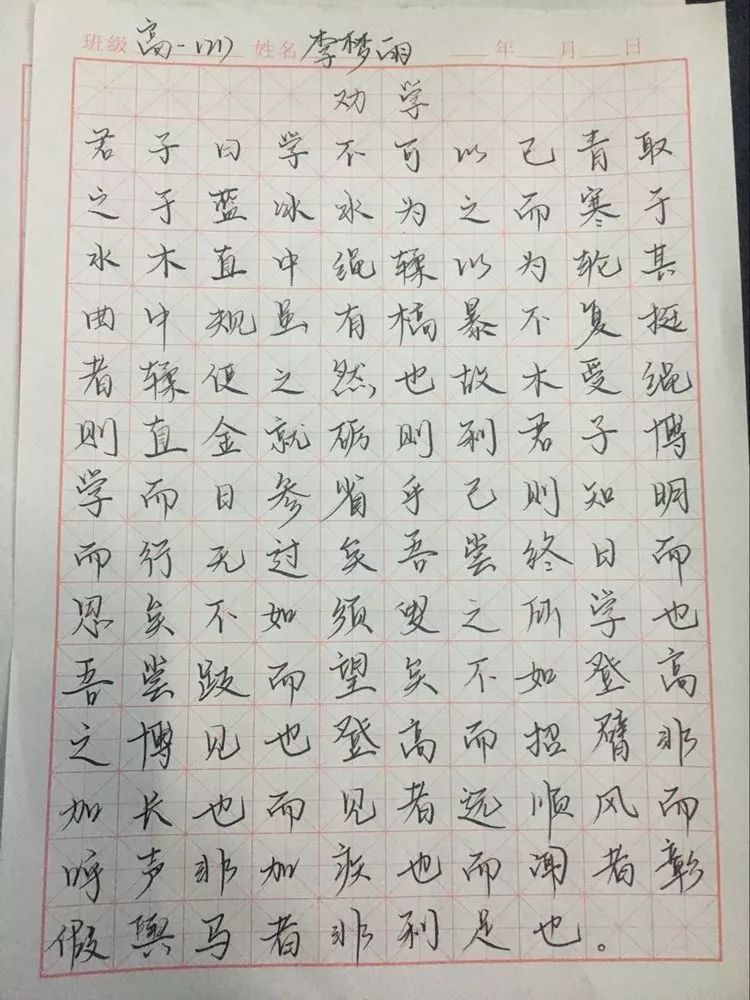 班级 高一(21) 姓名 李梦雨 年 月 日
劝学
君子曰学不可以已青取
之于蓝冰水为之而寒于
水木直中绳輮以为轮其
曲中规虽有槁暴不复挺
者輮使之然也故木受绳
则直金就砺则利君子博
学而日参省乎己则知明
而行无过矣吾尝终日而
思矣不如须臾之所学也
吾尝跂而望矣不如登高
之博见也登高而招臂非
加长也而见者远顺风而
呼声非加疾也而闻者彰
假舆马者非利足也。